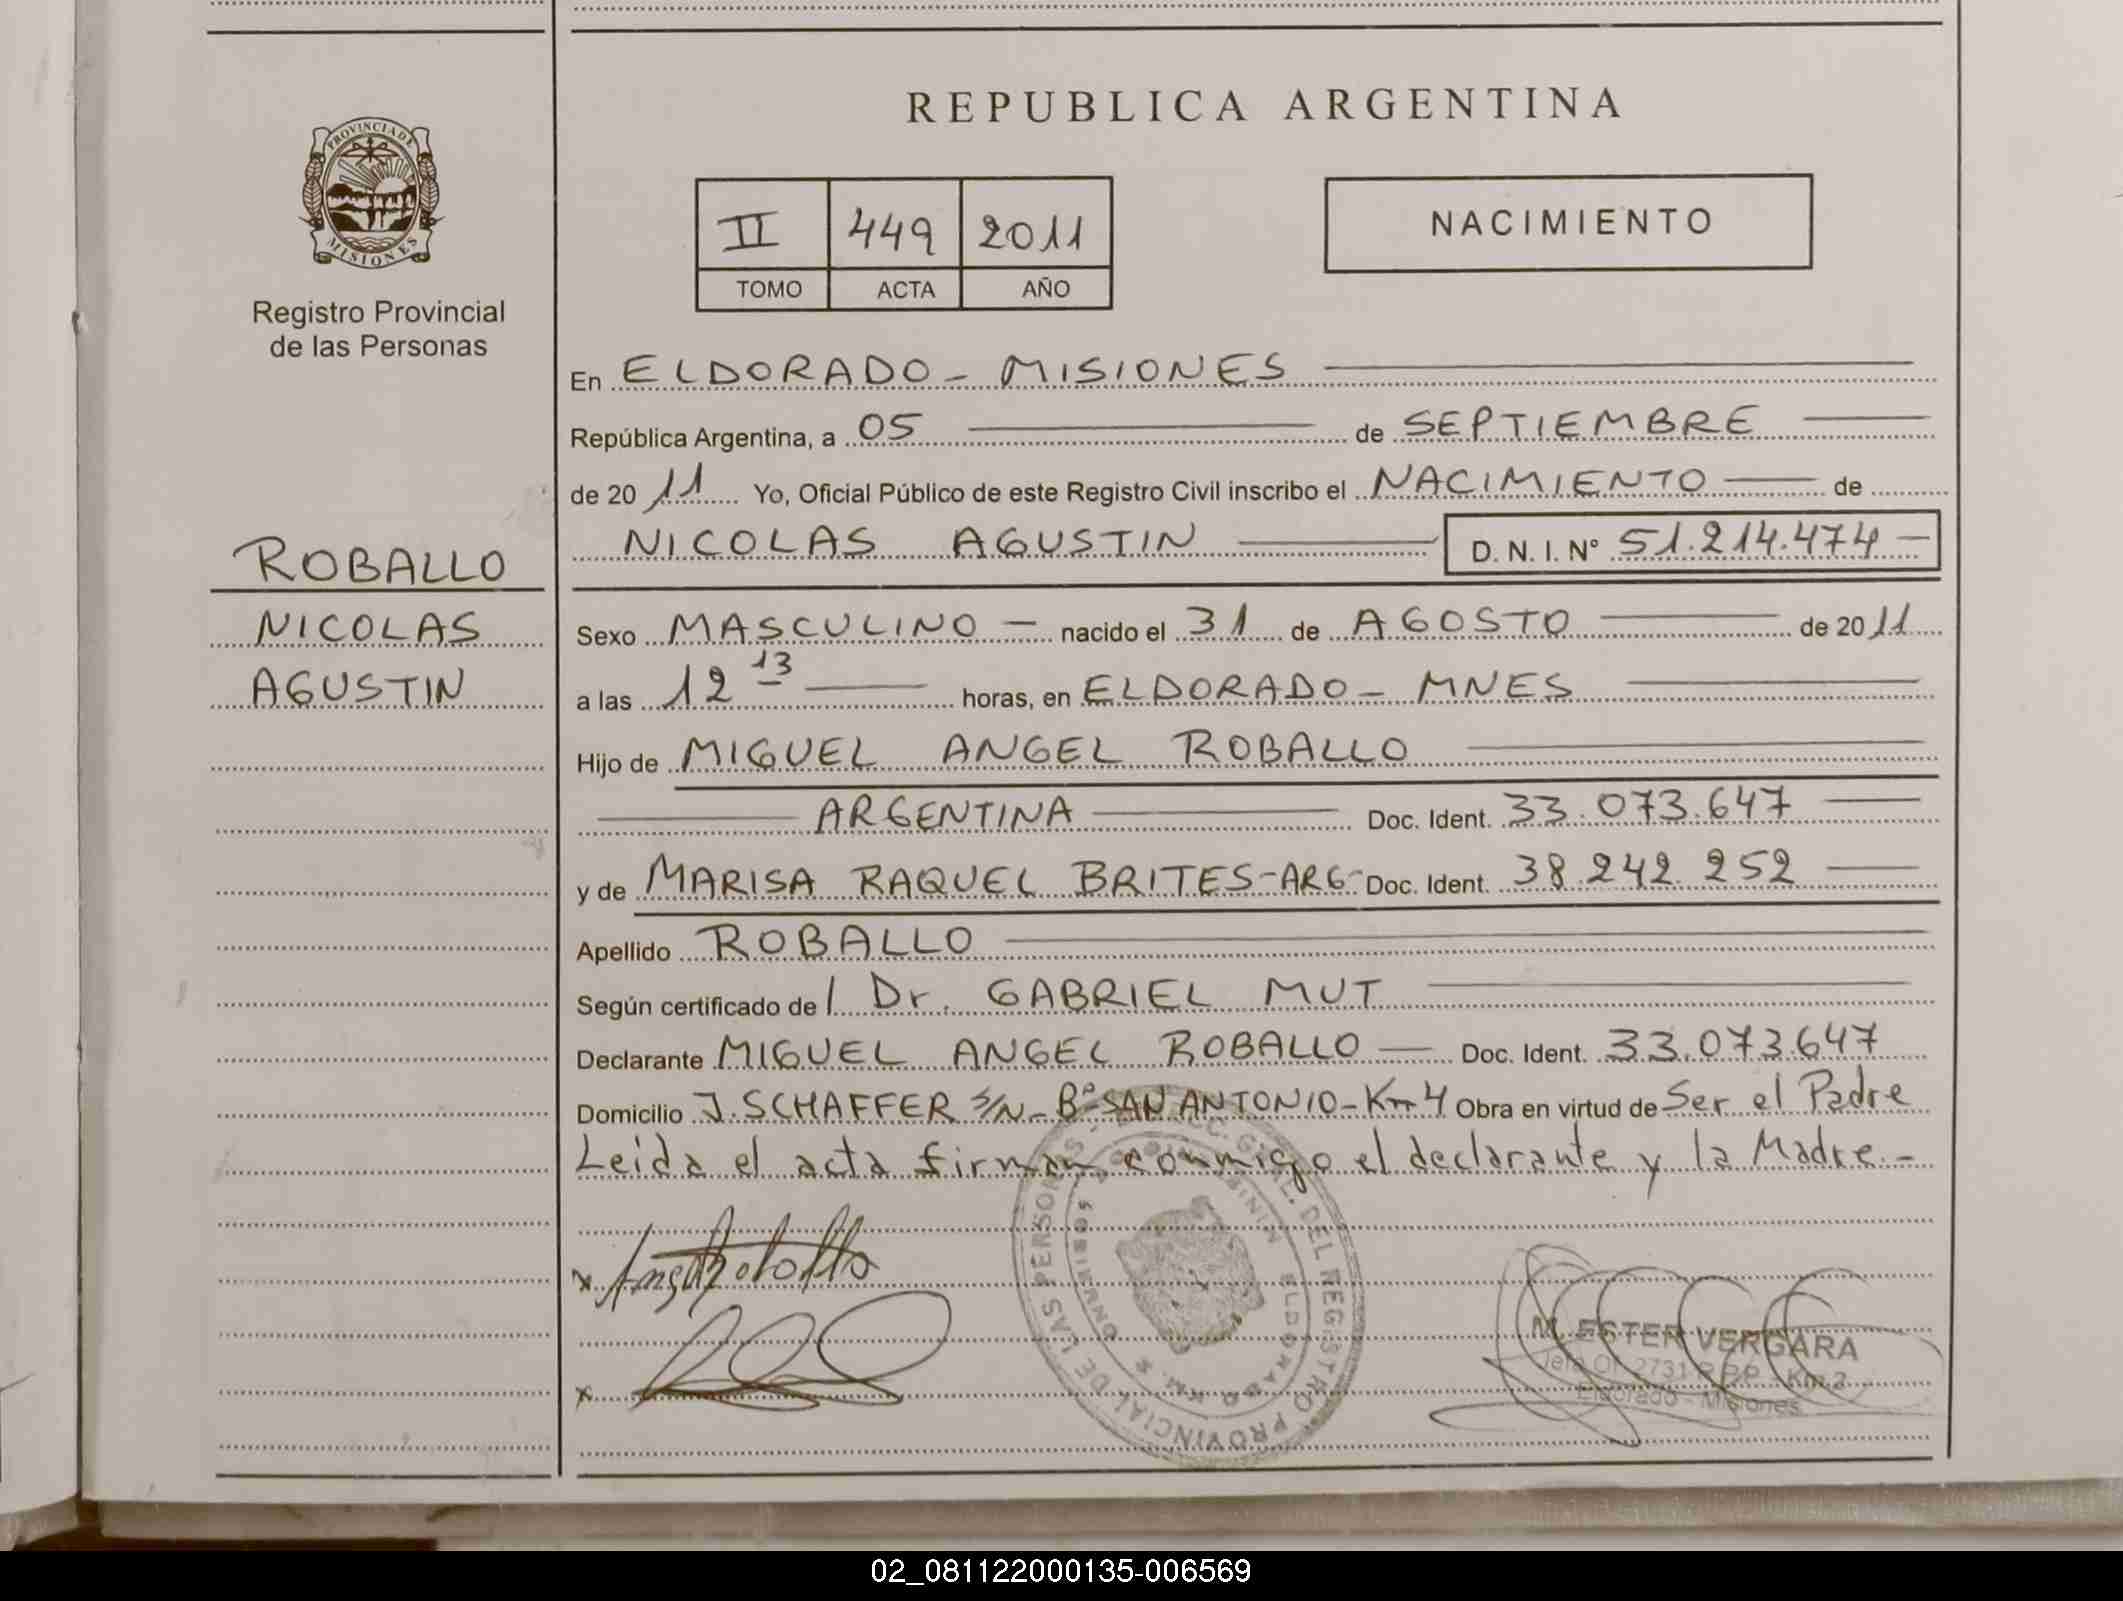 REPUBLICA ARGENTINA
PROVINCIA DE
MISIONES
Registro Provincial
de las Personas
II 449 2011
TOMO ACTA AÑO
NACIMIENTO
En ELDORADO - MISIONES
República Argentina, a 05 de SEPTIEMBRE
de 20 11 Yo, Oficial Público de este Registro Civil inscribo el NACIMIENTO de
NICOLAS AGUSTIN D. N. I. Nº 51.214.474
ROBALLO
NICOLAS
AGUSTIN
Sexo MASCULINO nacido el 31 de AGOSTO de 20 11
a las 12 13 horas, en ELDORADO - MNES
Hijo de MIGUEL ANGEL ROBALLO
ARGENTINA Doc. Ident. 33.073.647
y de MARISA RAQUEL BRITES-ARG- Doc. Ident. 38.242.252
Apellido ROBALLO
Según certificado de / Dr. GABRIEL MUT
Declarante MIGUEL ANGEL ROBALLO Doc. Ident. 33.073.647
Domicilio J. SCHAFFER S/N - Bº SAN ANTONIO - Km 4 Obra en virtud de Ser el Padre
Leida el acta firman conmigo el declarante y la Madre.-
GRAL. DEL REGISTRO PROVINCIAL DE LAS PERSONAS
ELDORADO KM.
M. ESTER VERGARA
Jefa Of. 2731 R.P.P. - Km 2
Eldorado - Misiones
02_081122000135-006569